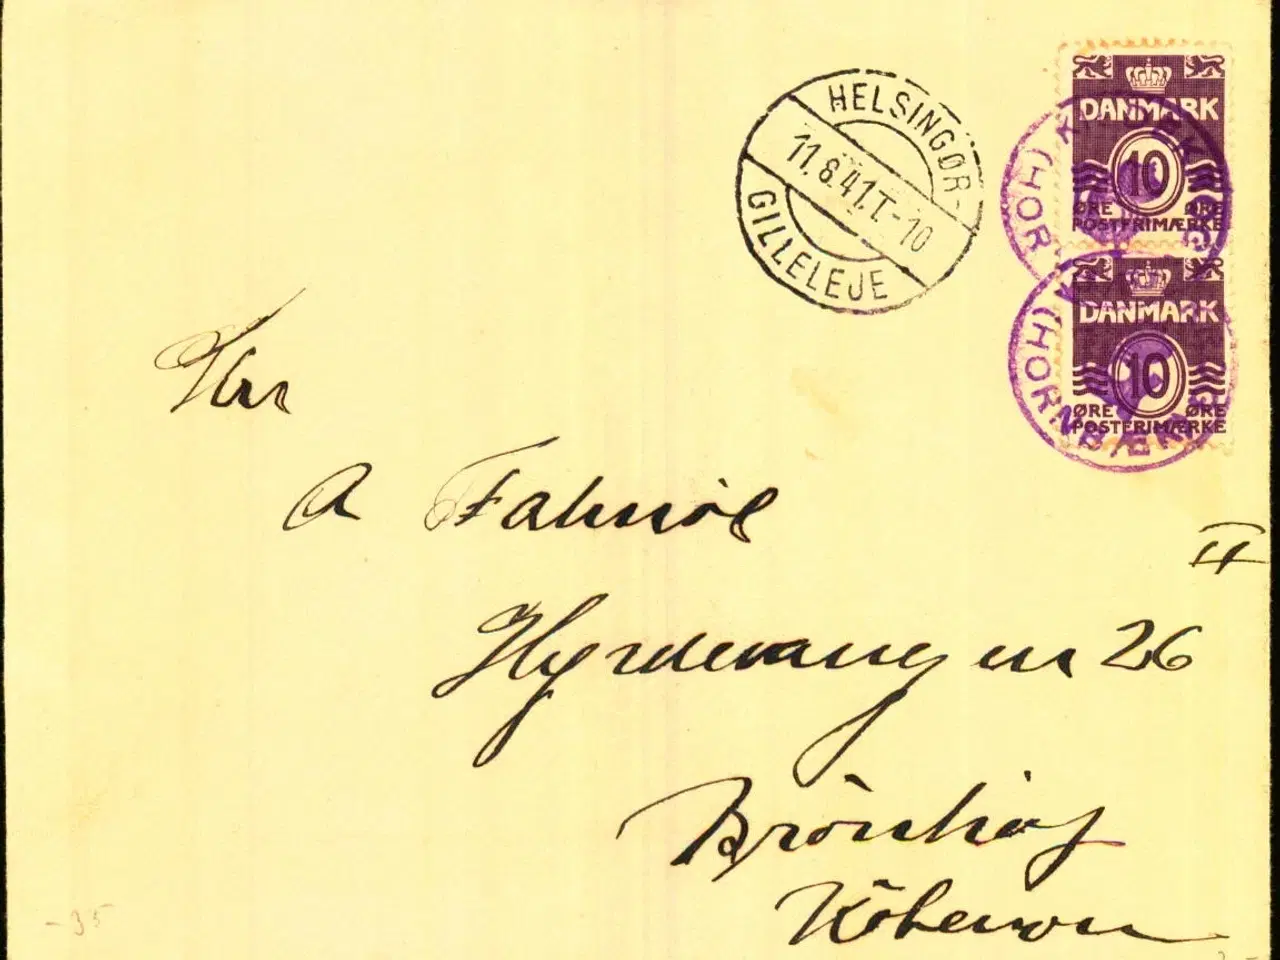 HELSINGØR-
11.8.41.T.-10
GILLELEJE
DANMARK
10
ØRE ØRE
POSTFRIMÆRKE
DANMARK
10
ØRE ØRE
POSTFRIMÆRKE
HORNBÆK
Hr
A Falmøe
II
Hyrdevangen 26
Brönshöj
Köbenvn
-35